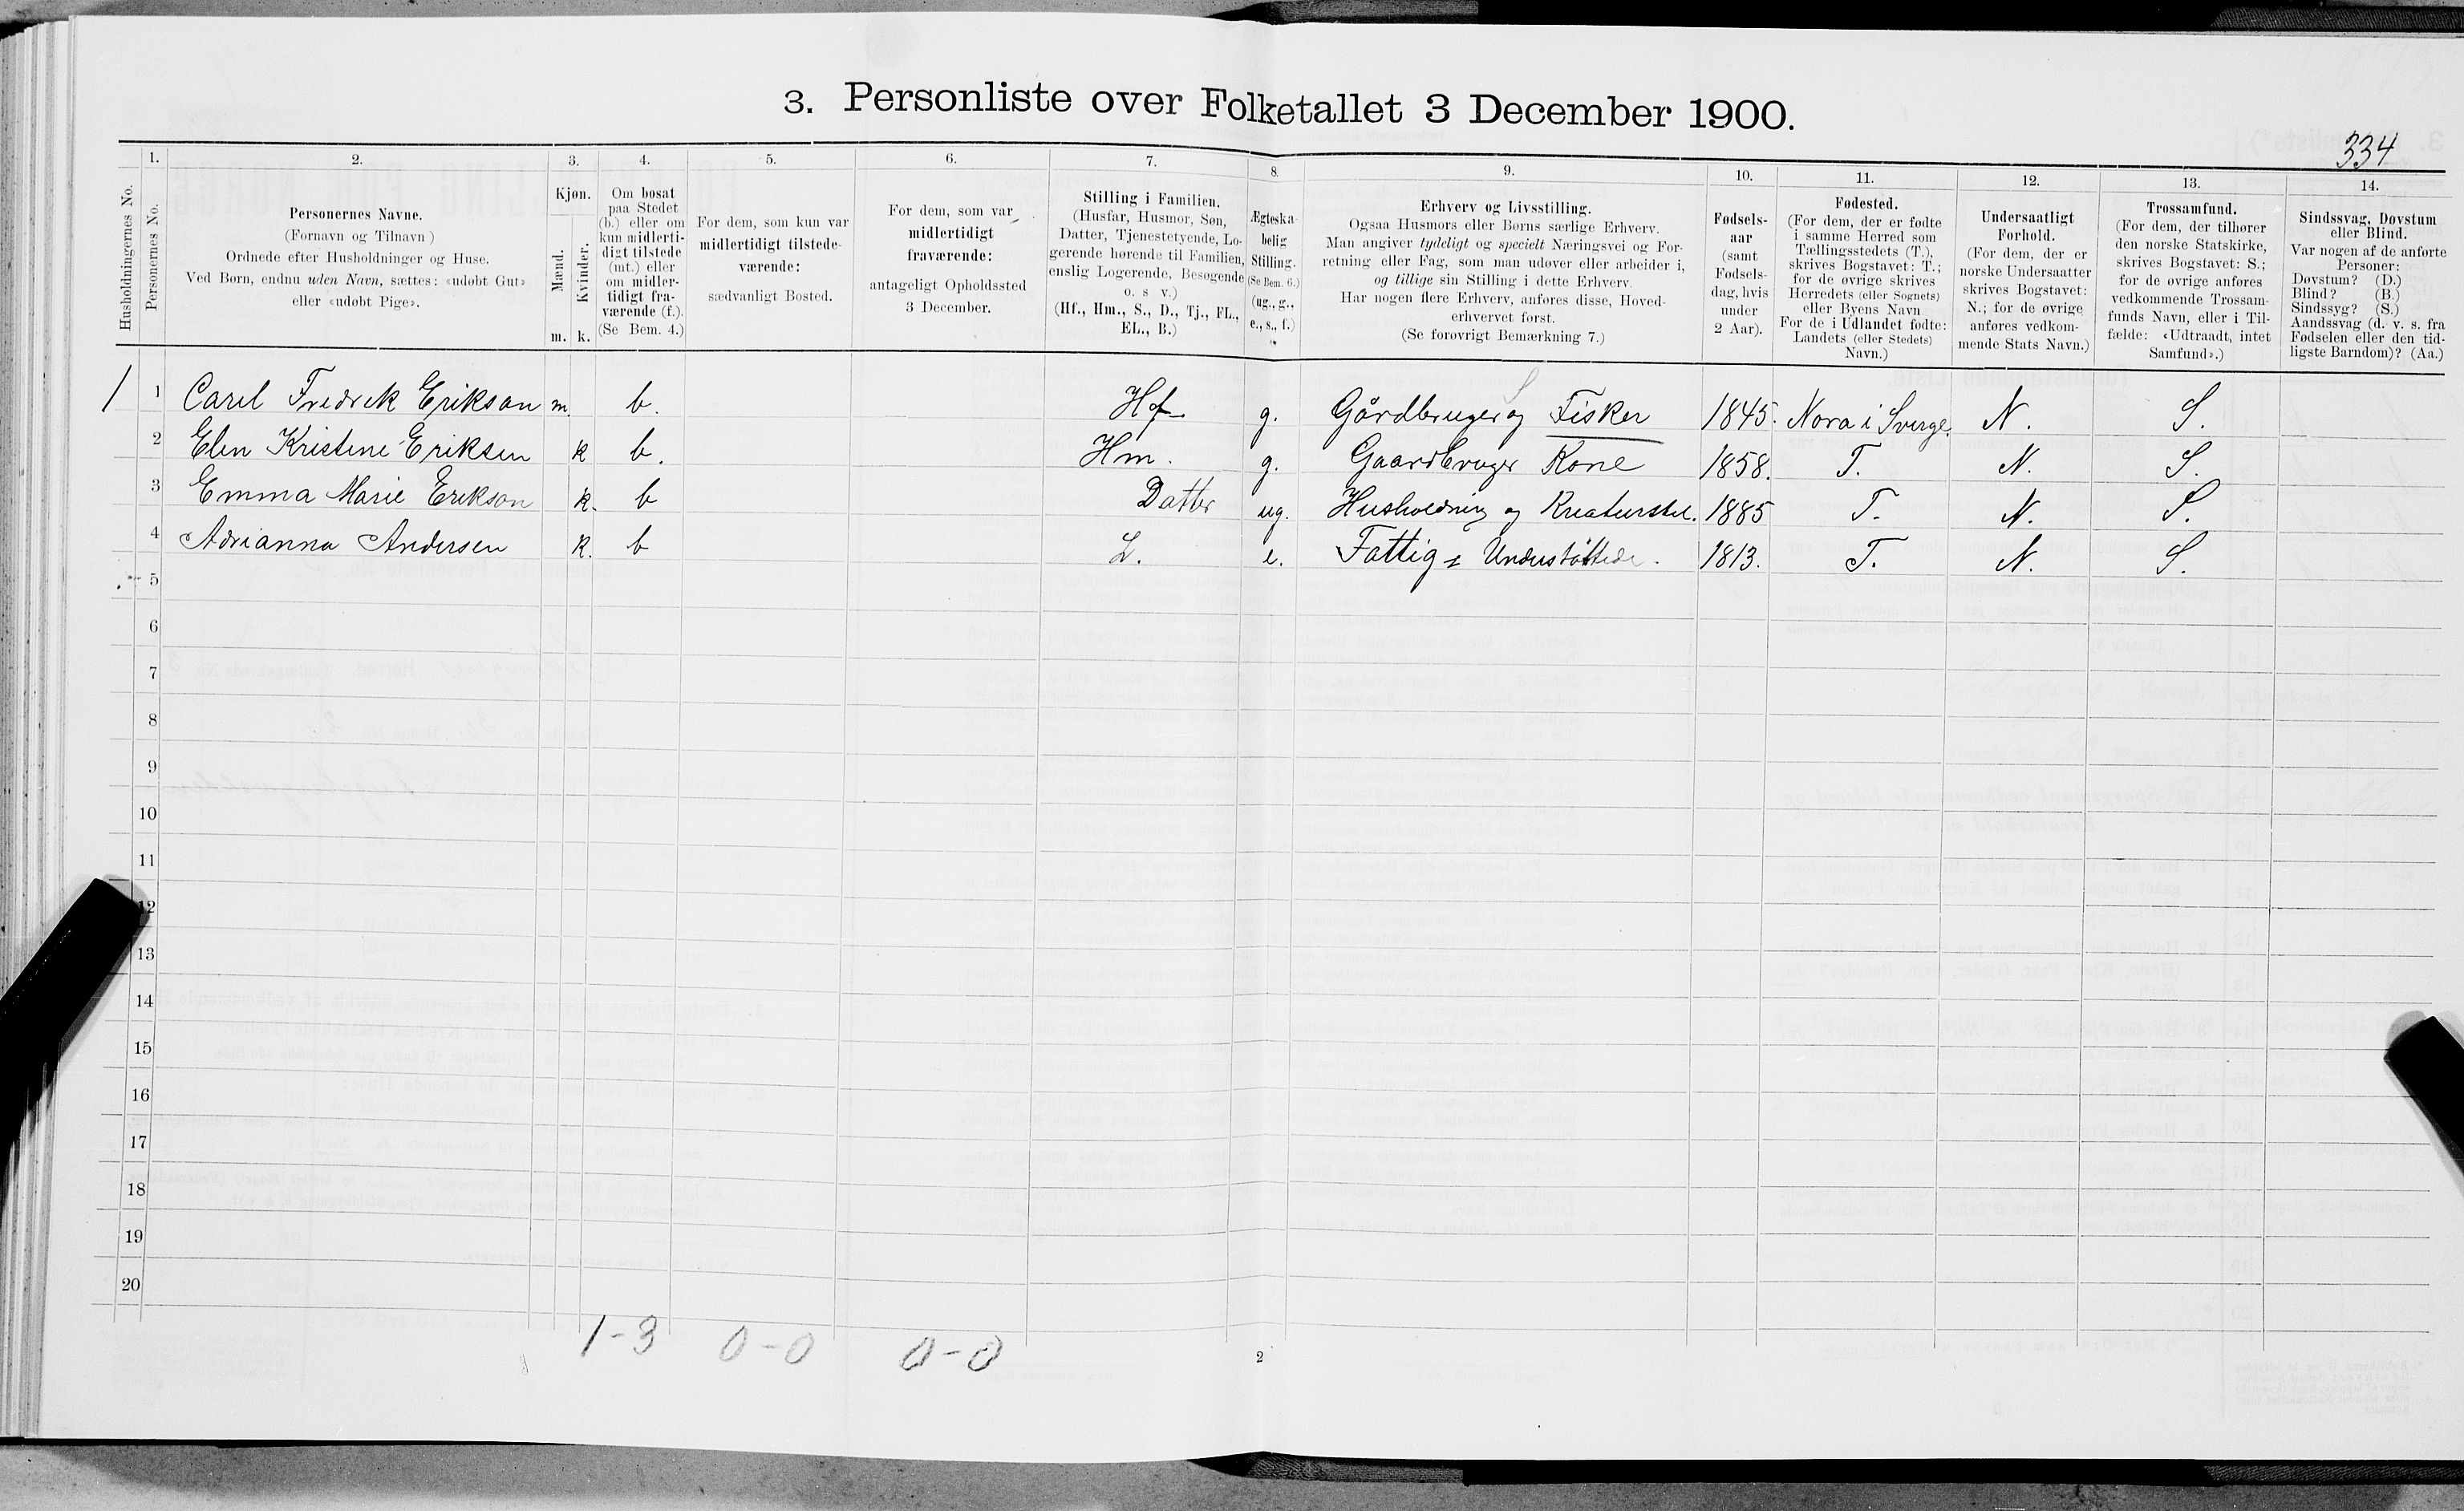 3. Personliste over Folketallet 3 December 1900.
334
1. 2. 3. 4. 5. 6. 7. 8. 9. 10. 11. 12. 13. 14.
Husholdningernes No.
Personernes No.
Personernes Navne.
(Fornavn og Tilnavn)
Ordnede efter Husholdninger og Huse.
Ved Børn, endnu uden Navn, sættes: «udøbt Gut»
eller «udøbt Pige».
Kjøn.
Mænd.
Kvinder.
m. k.
Om bosat
paa Stedet
(b.) eller om
kun midlerti-
digt tilstede
(mt.) eller
om midler-
tidigt fra-
værende (f.).
(Se Bem. 4.)
For dem, som kun var
midlertidigt tilstede-
værende:
sædvanligt Bosted.
For dem, som var
midlertidigt
fraværende:
antageligt Opholdssted
3 December.
Stilling i Familien.
(Husfar, Husmor, Søn,
Datter, Tjenestetyende, Lo-
gerende hørende til Familien,
enslig Logerende, Besøgende
o. s. v.)
(Hf., Hm., S., D., Tj., FL.,
EL., B.)
Ægteska-
belig
Stilling.
(Se Bem. 6.)
(ug., g.,
e., s., f.)
Erhverv og Livsstilling.
Ogsaa Husmors eller Børns særlige Erhverv.
Man angiver tydeligt og specielt Næringsvei og For-
retning eller Fag, som man udøver eller arbeider i,
og tillige sin Stilling i dette Erhverv.
Har nogen flere Erhverv, anføres disse, Hoved-
erhvervet først.
(Se forøvrigt Bemærkning 7.)
Fødsels-
aar
(samt
Fødsels-
dag, hvis
under
2 Aar).
Fødested.
(For dem, der er fødte
i samme Herred som
Tællingsstedets (T.),
skrives Bogstavet: T.;
for de øvrige skrives
Herredets (eller Sognets)
eller Byens Navn
For de i Udlandet fødte:
Landets (eller Stedets)
Navn.)
Undersaatligt
Forhold.
(For dem, der er
norske Undersaatter
skrives Bogstavet:
N.; for de øvrige
anføres vedkom-
mende Stats Navn.)
Trossamfund.
(For dem, der tilhører
den norske Statskirke,
skrives Bogstavet: S.;
for de øvrige anføres
vedkommende Trossam-
funds Navn, eller i Til-
fælde: «Udtraadt, intet
Samfund».)
Sindssvag, Døvstum
eller Blind.
Var nogen af de anførte
Personer:
Døvstum? (D.)
Blind? (B.)
Sindssyg? (S.)
Aandssvag (d. v. s. fra
Fødselen eller den tid-
ligste Barndom)? (Aa.)
1 1 Carel Fredrek Erikson m. b. Hf. g. Gårdbruger og Fisker 1845. Nora i Sverge. N. S.
2 Elen Kristine Eriksen k b. Hm. g. Gaardbruger Kone 1858. T. N. S.
3 Emma Marie Erikson k. b Datter ug. Husholdning og Kreaturstel. 1885 T. N. S.
4 Adrianna Andersen k. b L. e. Fattig = Understøttede. 1813. T. N. S.
5
6
7
8
9
10
11
12
13
14
15
16
17
18
19
20
1-3 0-0 0-0
2